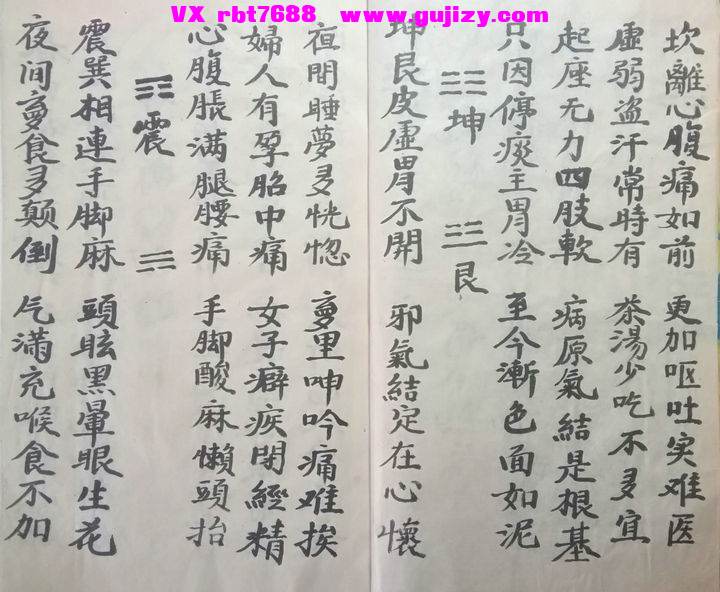 VX rbt7688 www.gujizy.com
坎離心腹痛如前 更加呕吐实难医
虛弱盗汗常時有 茶湯少吃不多宜
起座无力四肢軟 病原氣結是根基
只因停痰主胃冷 至今漸色面如泥
☷坤 ☶艮
坤艮皮虛胃不開 邪氣結定在心懷
夜間睡夢多恍惚 夢里呻吟痛难挨
婦人有孕胎中痛 女子癖疾閉經精
心腹脹满腿腰痛 手脚酸麻懶頭抬
震
震巽相連手脚麻 頭眩黑暈眼生花
夜间夢食多颠倒 气满充喉食不加